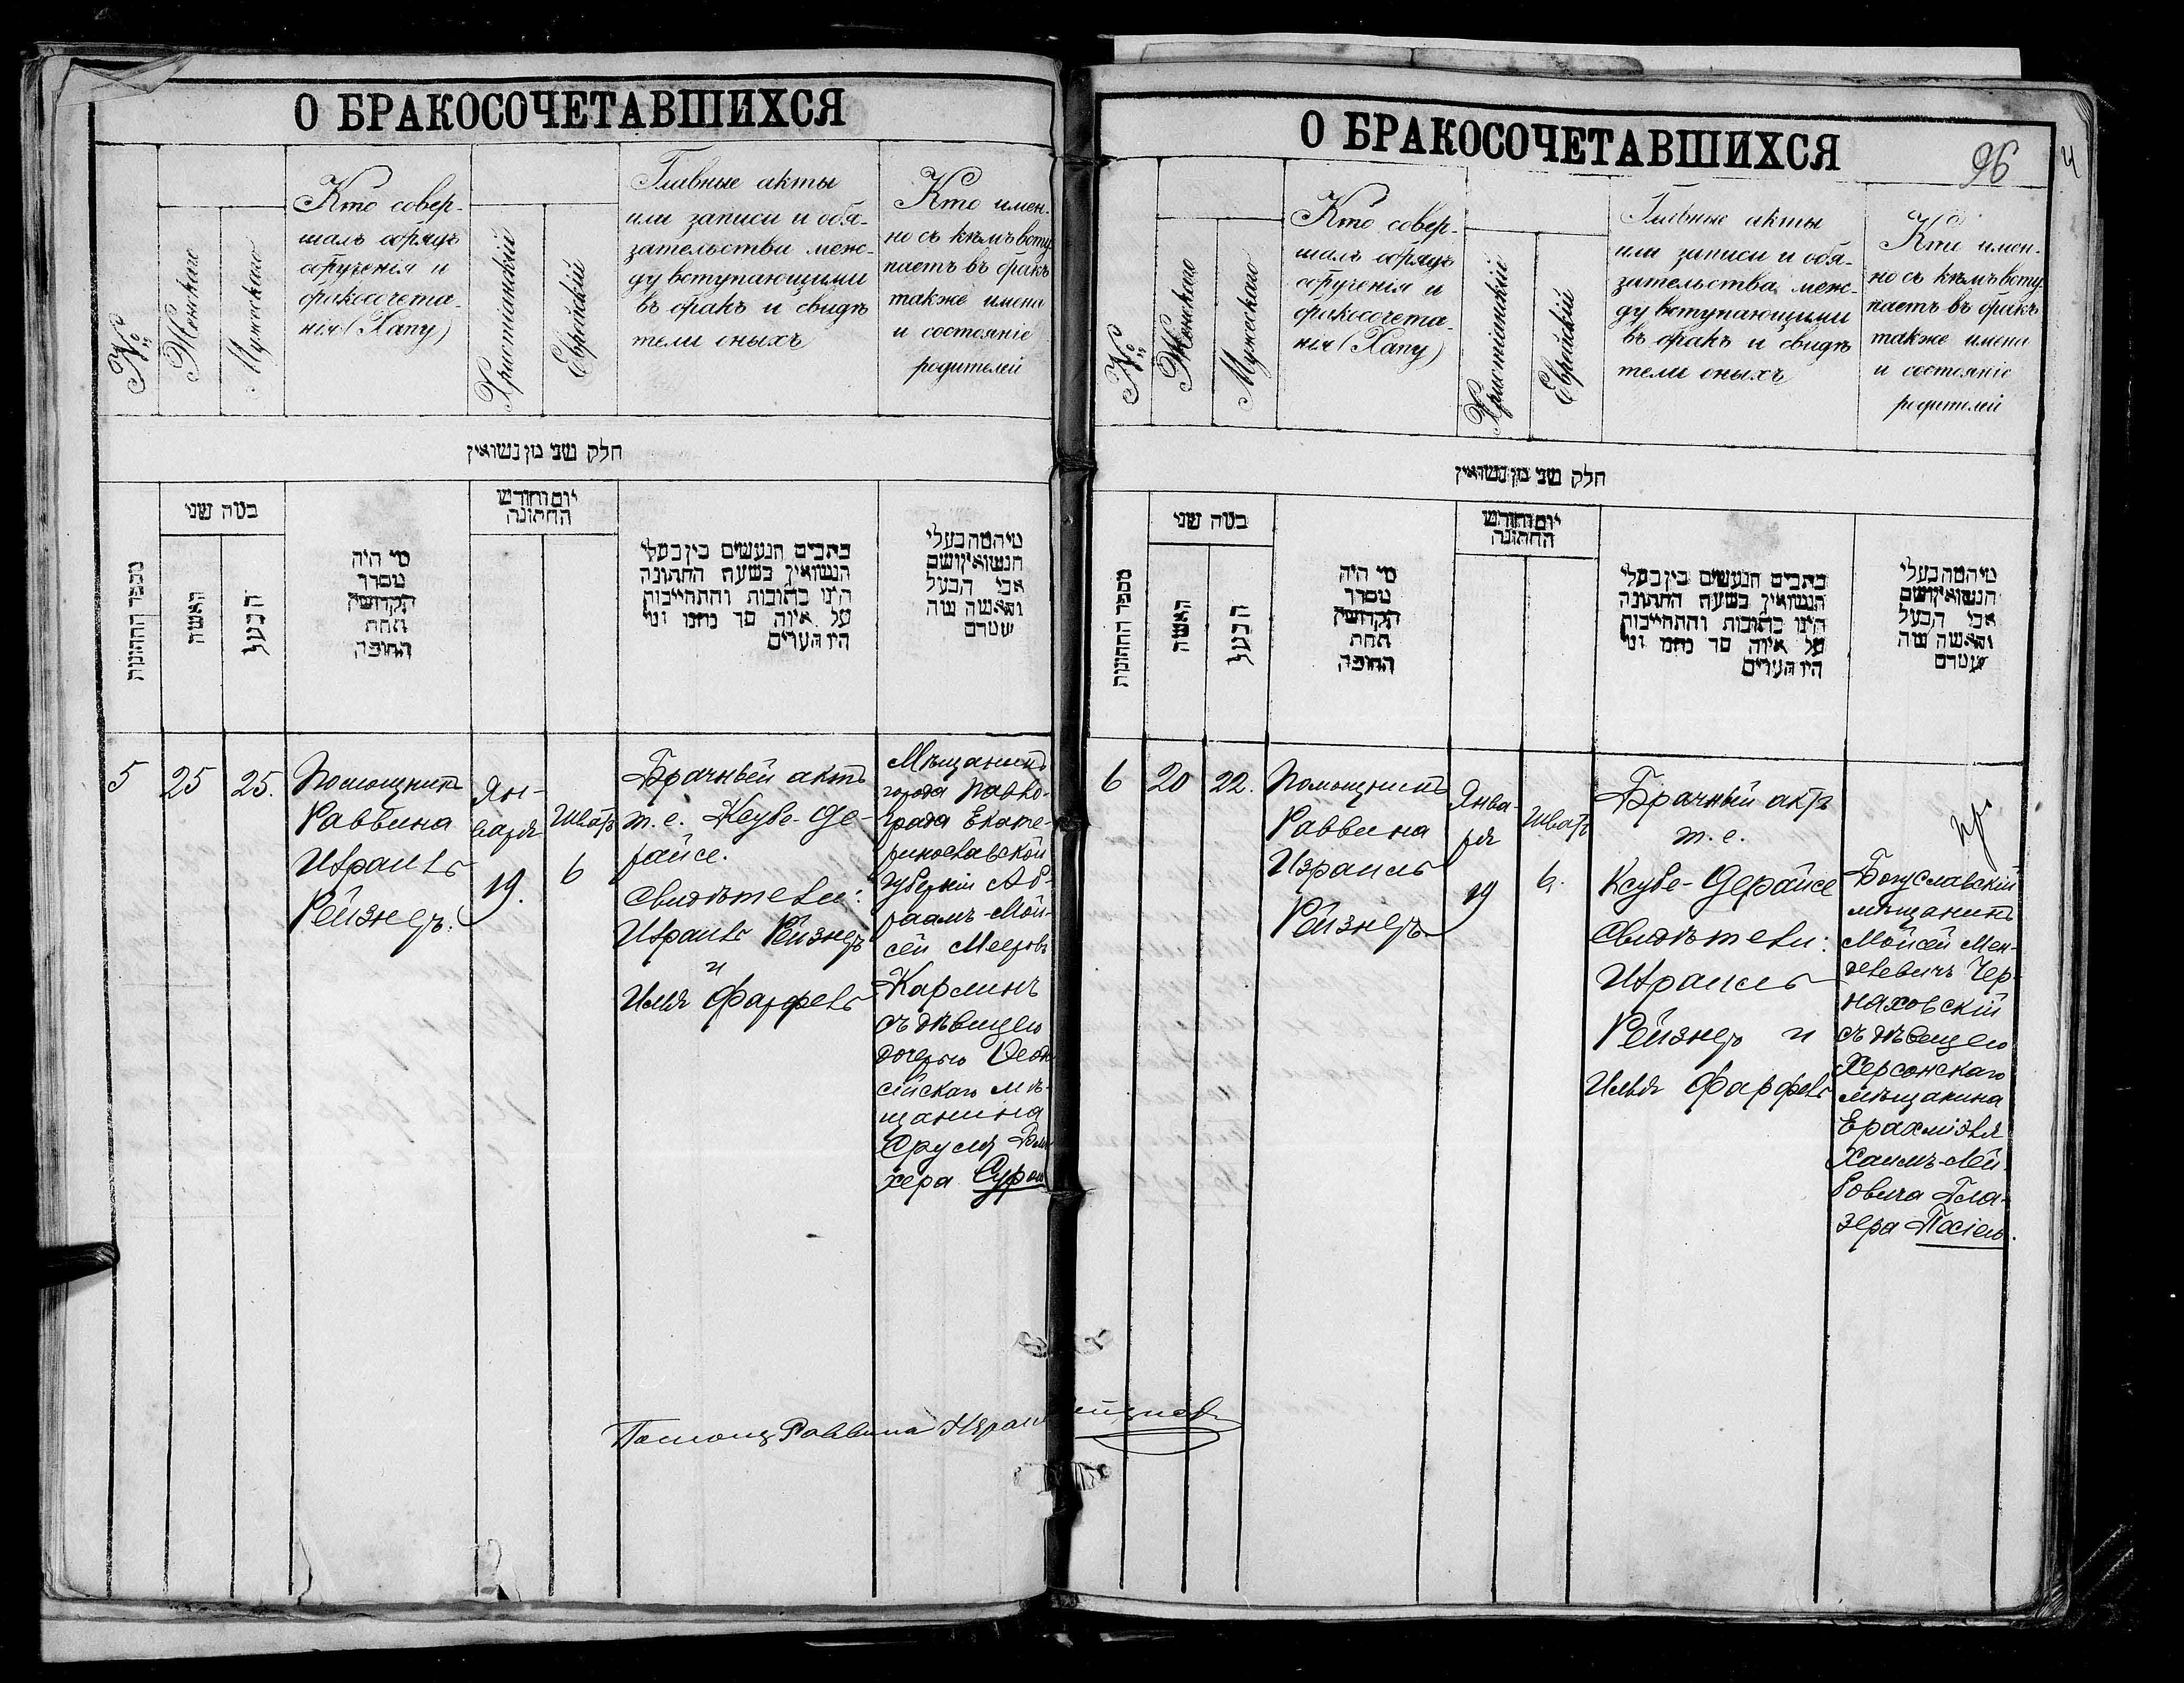 О БРАКОСОЧЕТАВШИХСЯ
№
Женскаго
Мужескаго
Кто совер-
шалъ обрядъ
обрученія и
бракосочета-
нія (Хапу)
Христіанскій
Еврейскій
Главные акты
или записи и обя-
зательства меж-
ду вступающими
въ бракъ и свидѣ
тели оныхъ
Кто имен-
но съ кѣмъ всту
паетъ въ бракъ
также имена
и состояніе
родителей
חלק שני מן נשואין
מספר החתונות
במה שני
האשה
הבעל
מי היה
מסדר
הקדושין
תחת
החופה
יום וחודש
החתונה
כתבים הנעשים בין בעלי
הנשואין בשעת החתונה
היינו כתובות והתחייבות
על איזה סך נתנו ומי
היו העדים
מי המה בעלי
הנשואין ושם
אבי הבעל
והאשה מה
שמדם
5
25
25.
Помощникъ
Раввина
Израиль
Рейзнеръ.
Ян-
варя
19.
Шватъ
6
Брачный актъ
т. е. Ксубе-Де-
райсе.
Свидѣтели:
Израиль Рейзнеръ
и
Илья Фарфель
Мѣщанинъ
города Павло-
града Екате-
ринославской
губерніи Аб-
раамъ-Мой-
сей Мееровъ
Карлинъ
съ дѣвицею
дочерью Ѳеодо
сійскаго мѣ-
щанина
Сруля
хера Сурою
Помощ Раввина Израиль Рейзнеръ
О БРАКОСОЧЕТАВШИХСЯ
96
4
№
Женскаго
Мужескаго
Кто совер-
шалъ обрядъ
обрученія и
бракосочета-
нія (Хапу)
Христіанскій
Еврейскій
Главные акты
или записи и обя-
зательства меж-
ду вступающими
въ бракъ и свидѣ
тели оныхъ
Кто имен-
но съ кѣмъ всту
паетъ въ бракъ
также имена
и состояніе
родителей
חלק שני מן נשואין
מספר החתונות
במה שני
האשה
הבעל
מי היה
מסדר
הקדושין
תחת
החופה
יום וחודש
החתונה
כתבים הנעשים בין בעלי
הנשואין בשעת החתונה
היינו כתובות והתחייבות
על איזה סך נתנו ומי
היו העדים
מי המה בעלי
הנשואין ושם
אבי הבעל
והאשה מה
שמדם
6
20
22.
Помощникъ
Раввина
Израиль
Рейзнеръ
Янва-
ря
19
Шватъ
6.
Брачный актъ
т. е.
Ксубе-Дерайсе
Свидѣтели:
Израиль
Рейзнеръ и
Илья Фарфель
Богуславскій
мѣщанинъ
Мойсей Мен-
делевичъ Чер-
няховскій
съ дѣвицею
Херсонскаго
мѣщанина
Ерахміэля
Хаимъ-Лей-
бовича Гла-
зера Песіею.